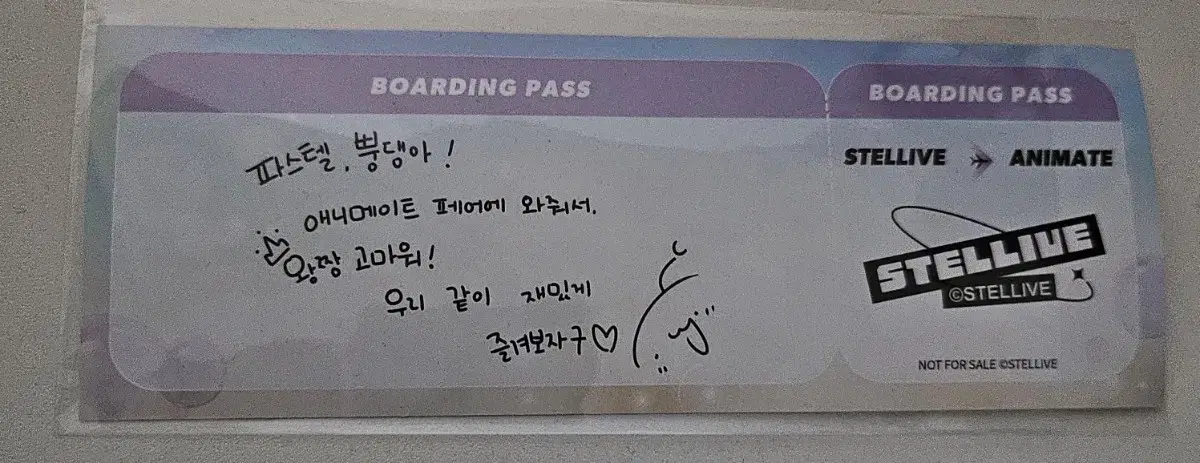 BOARDING PASS
파스텔, 뿡댕아!
애니메이트 페어에 와줘서,
왕짱 고마워!
우리 같이 재밌게
즐겨보자구♡
BOARDING PASS
STELLIVE ANIMATE
STELLIVE
©STELLIVE
NOT FOR SALE ©STELLIVE